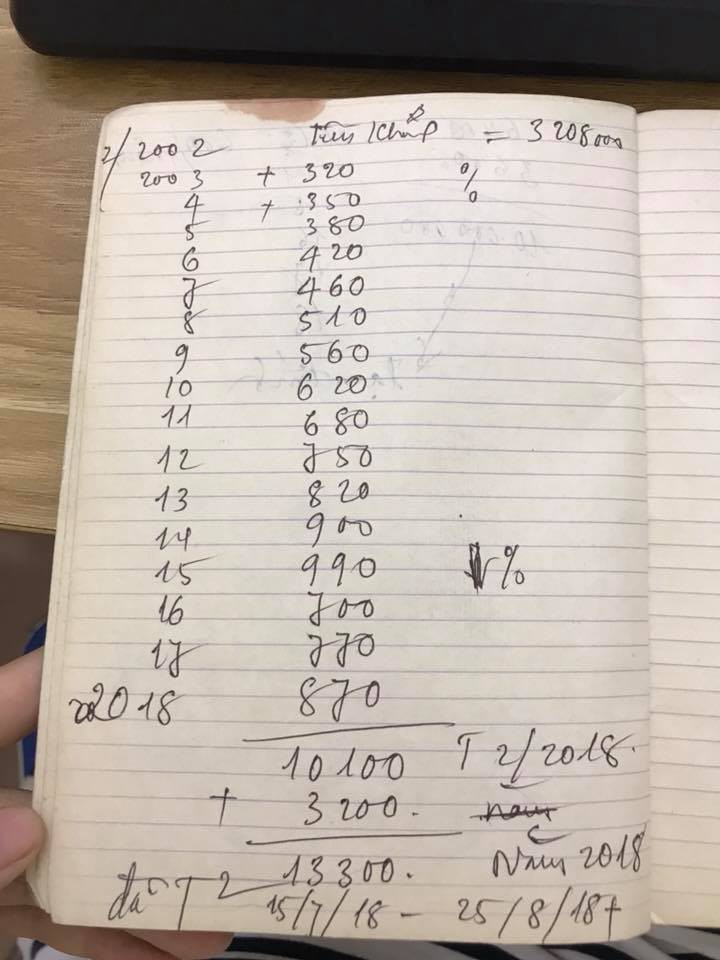 2/2002 Tiền = 3 208 000
2003 + 320 %
4 + 350
5 380
6 420
7 460
8 510
9 560
10 620
11 680
12 750
13 820
14 900
15 990 %
16 700
17 770
2018 870
10100 T 2/2018.
+ 3 200.
13 300. Năm 2018
đến T 2 15/7/18 - 25/8/18+